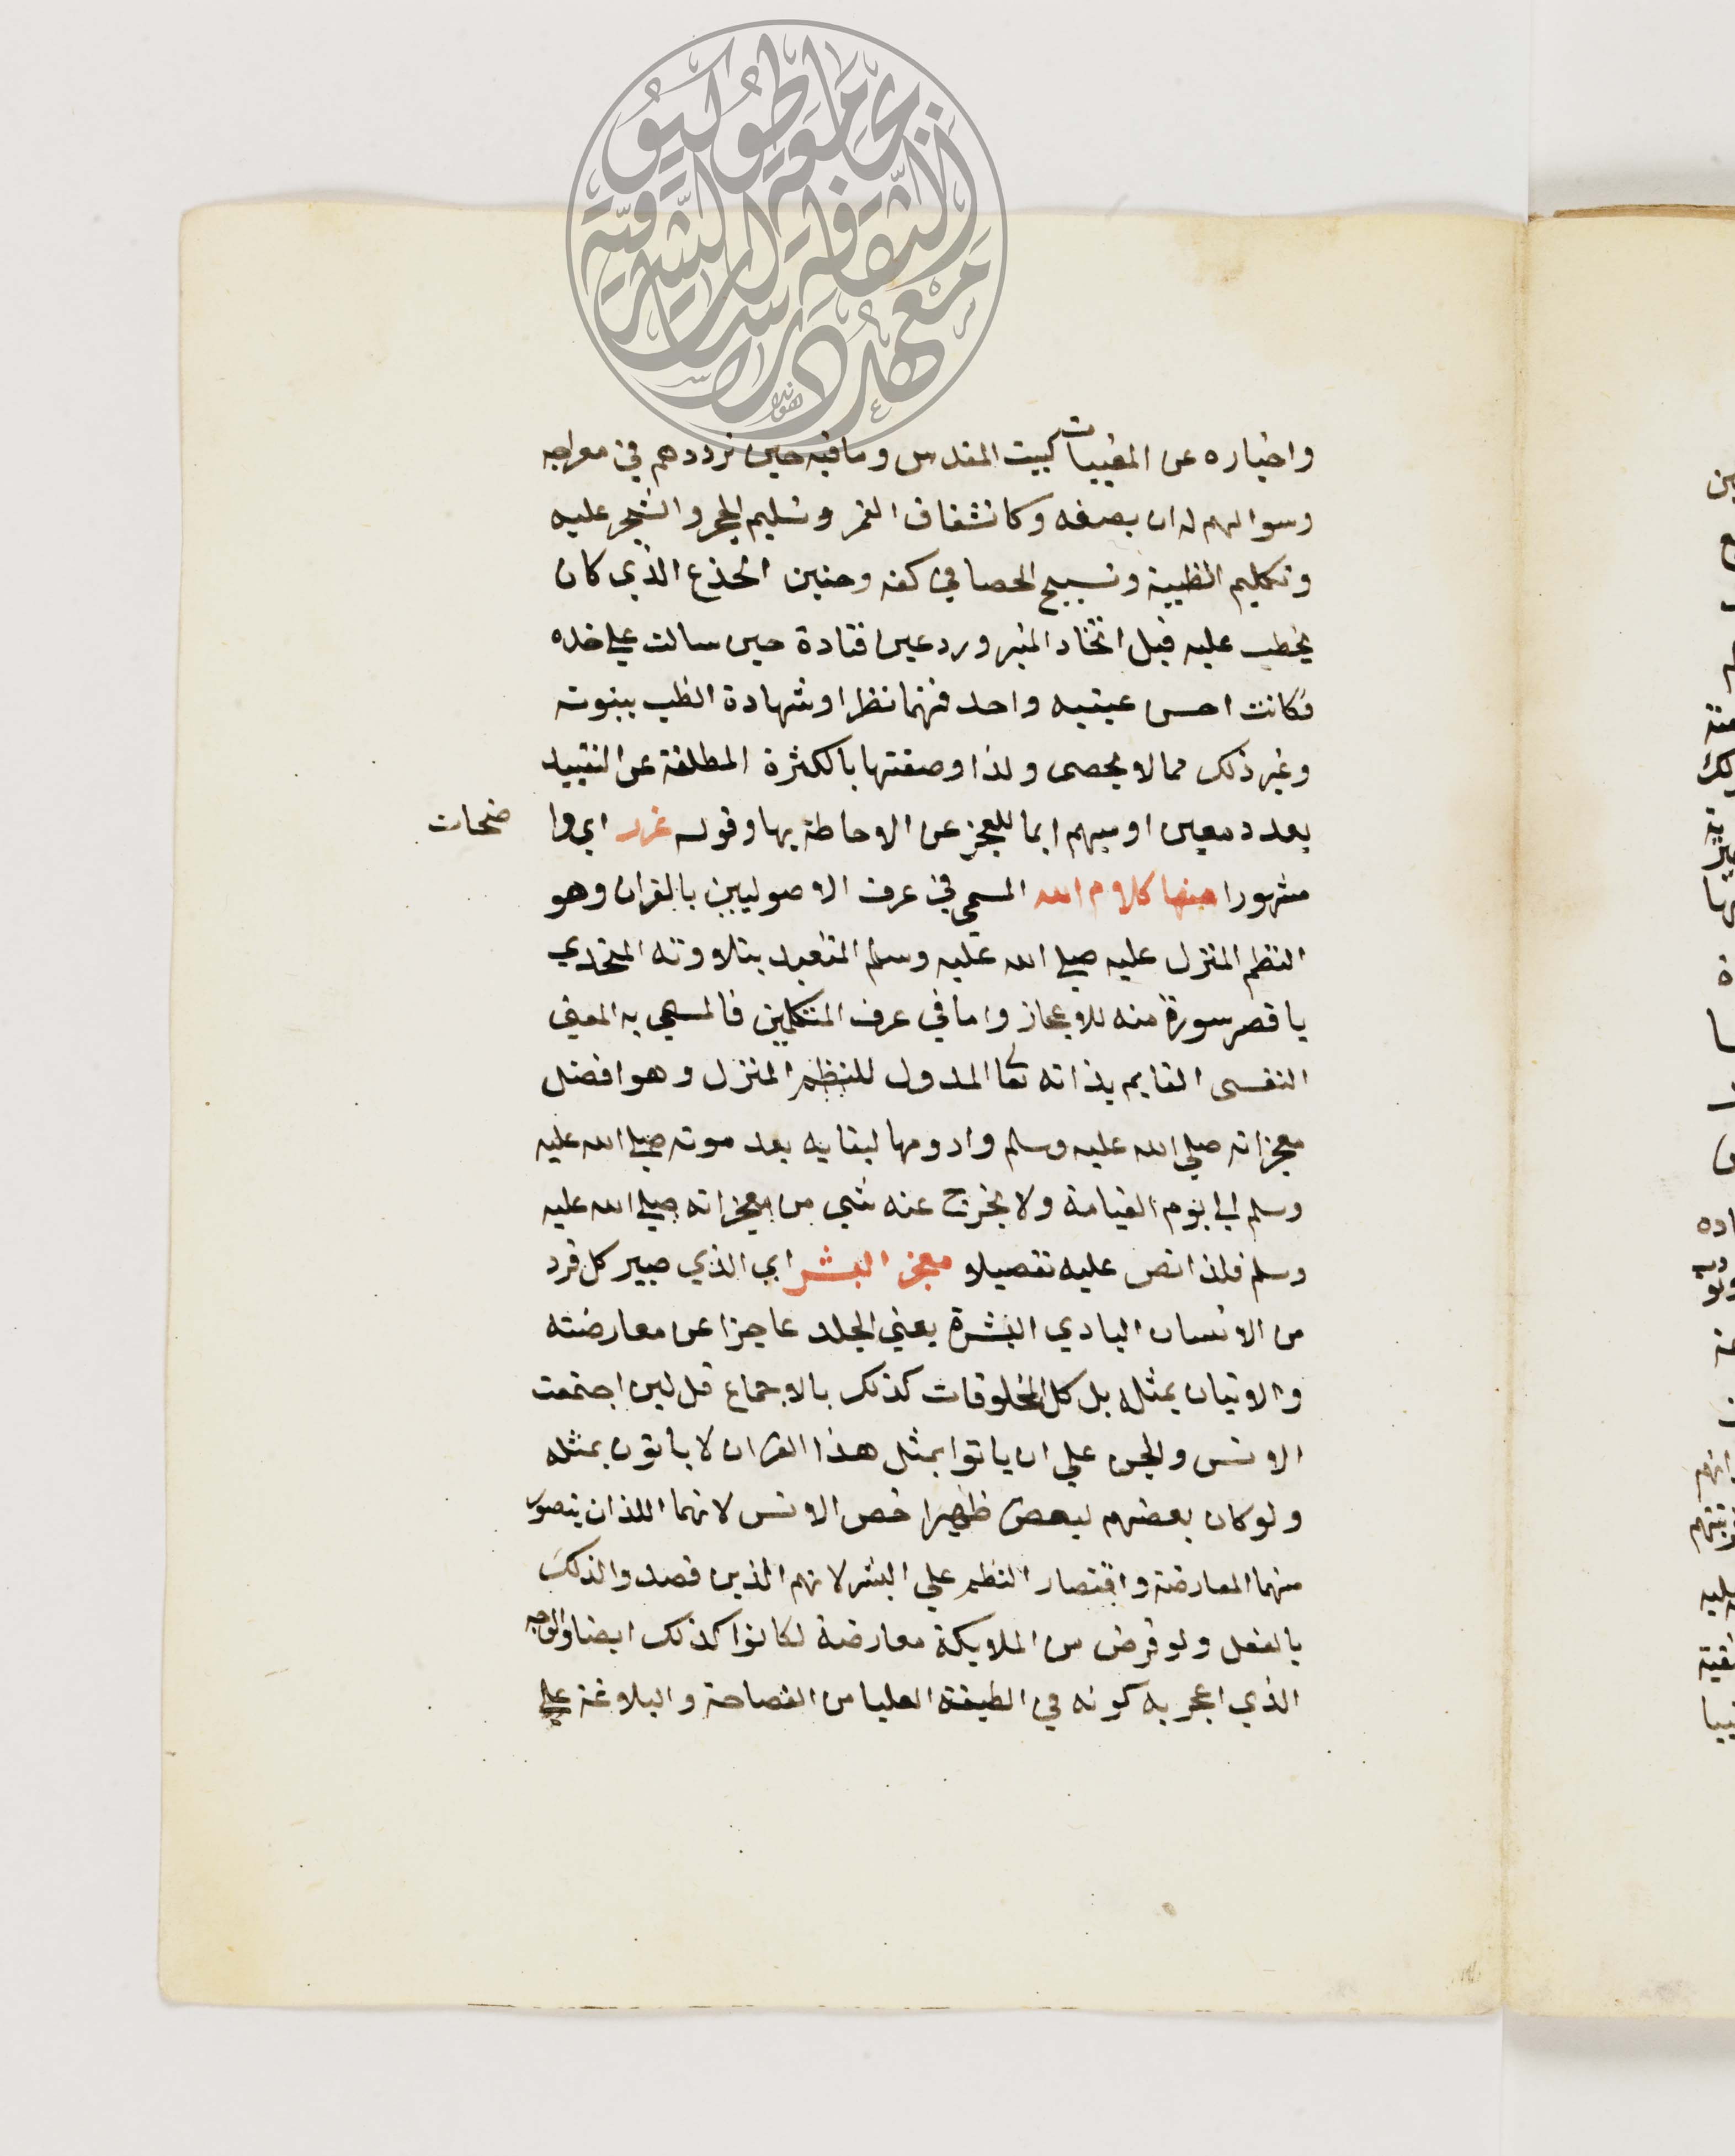 واخباره عن المغيبات كبيت المقدس وما فيه حين ترددهم في معراجه
وسوالهم له ان يصفه وكانشقاق القمر وتسليم الحجر والشجر عليه
وتكليم الظبية وتسبيح الحصا في كفه وحنين الجذع الذي كان
يخطب عليه قبل اتخاد المنبر ورد عين قتادة حين سالت علي خده
فكانت احسن عينيه واحد منهما نظرا وشهادة الظب بنبوته
وغير ذلك مما لا يحصى ولذا وصفتها بالكثرة المطلقة عن التقييد
بعدد معين او مبهم ايما للعجز عن الاحاطة بها وقوله غرر اي وا
ضحات
مشهورا منها كلام الله المسمي في عرف الاصوليين بالقران وهو
النظم المنزل عليه صلي الله عليه وسلم المتعبد بتلاوته المتحدي
باقصر سورة منه للاعجاز واما في عرف المتكلمين فالمسمي به المعني
النفسى القايم بذاته تعا المدول للنظم المنزل وهو افضل
معجزاته صلي الله عليه وسلم وادومها لبقايه بعد موته صلي الله عليه
وسلم الي يوم القيامة ولا يخرج عنه شي من معجزاته صلي الله عليه
وسلم فلذا نص عليه تفصيلا معجز البشر اي الذي صير كل فرد
من الانسان البادي البشرة يعني الجلد عاجزا عن معارضته
والاتيان بمثله بل كل المخلوقات كذلك بالاجماع قل لين اجتمعت
الانس والجن علي ان ياتوا بمثل هذا القران لا ياتون بمثله
ولو كان بعضهم لبعض ظهيرا خص الانس لانهما اللذان يتصور
منهما المعارضة واقتصار النظم علي البشر لانهم الذين قصدوا لذلك
بالفعل ولو فرض من الملايكة معارضة لكانوا كذلك ايضا والوجه
الذي اعجز به كونه في الطبقة العليا من الفصاحة والبلاغة علي
جامعة طوكيو
الثقافة الشرقية
معهد دراسات